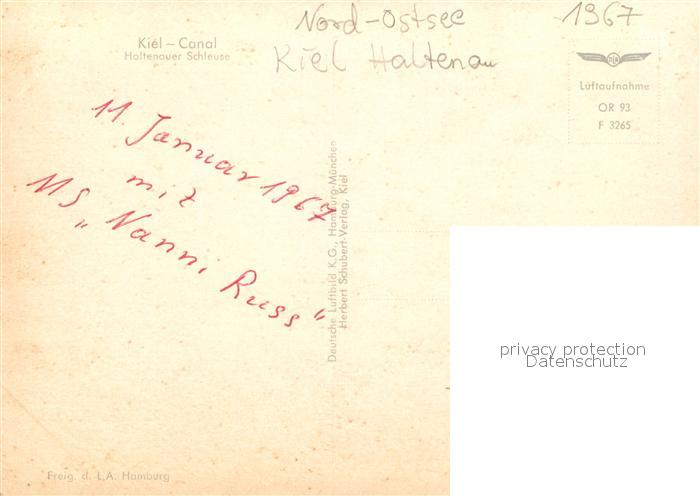 Nord-Ostsee
1967
Kiel Haltenau
Kiel – Canal
Haltenauer Schleuse
Luftaufnahme
OR 93
F 3265
11. Januar 1967
mit
MS „Nanni Russ“
Deutsche Luftbild K.G., Hamburg-München
Herbert Schubert-Verlag, Kiel
privacy protection
Datenschutz
Freig. d. L.A. Hamburg